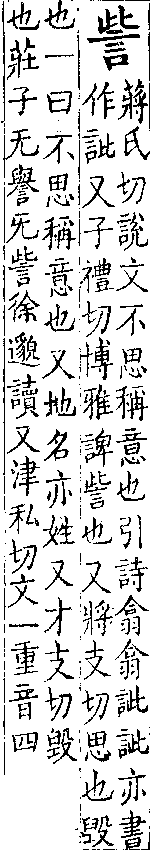 訾
蔣氏切說文不思稱意也引詩翕翕訿訿亦書
作訿又子禮切博雅諀訾也又將支切思也毀
也一曰不思稱意也又地名亦姓又才支切毀
也莊子无譽无訾徐邈讀又津私切文一重音四